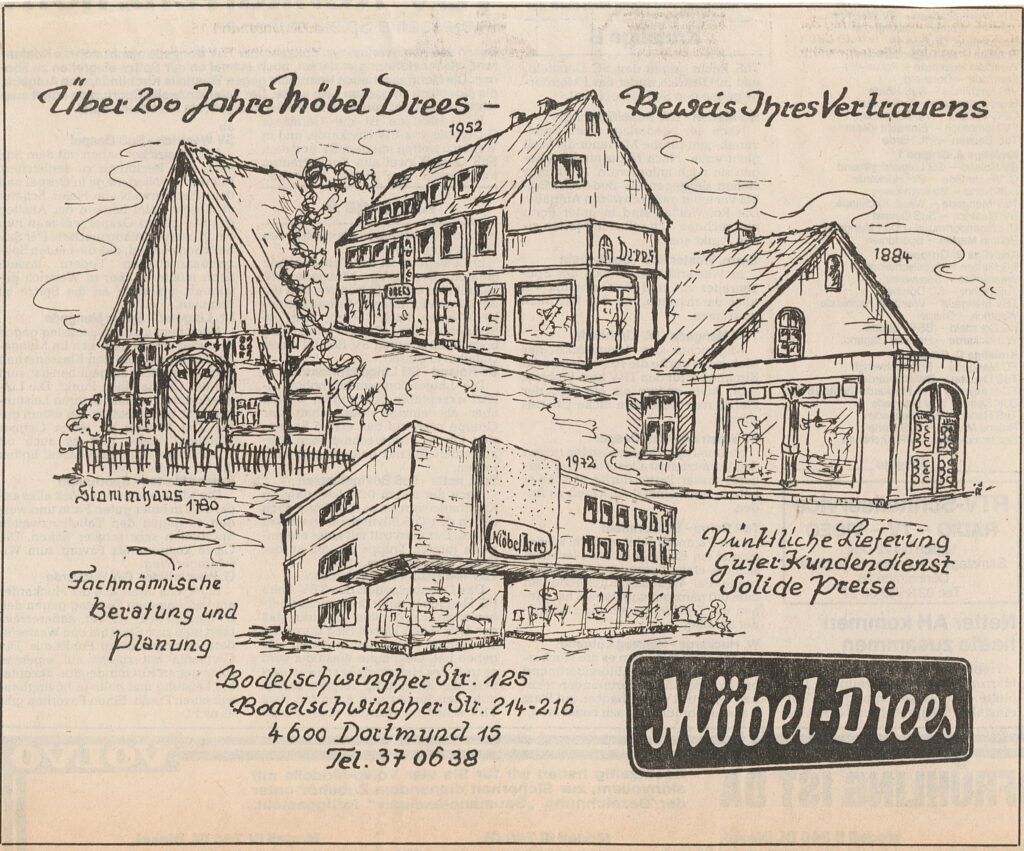 Über 200 Jahre Möbel Drees – Beweis Ihres Vertrauens
1952
Drees
DREES
1884
Stammhaus
1780
1972
Möbel Drees
Fachmännische
Beratung und
Planung
Pünktliche Lieferung
Guter Kundendienst
Solide Preise
Bodelschwingher Str. 125
Bodelschwingher Str. 214-216
4600 Dortmund 15
Tel. 37 06 38
Möbel-Drees